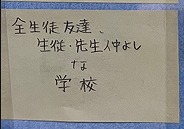 全生徒友達、
生徒・先生仲よし
な
学校